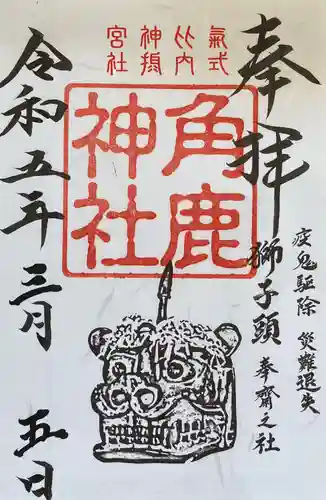 氣比神宮
式内摂社
奉拝
疫鬼驅除 災難退失
獅子頭 奉齋之社
角鹿
神社
令和五年三月五日